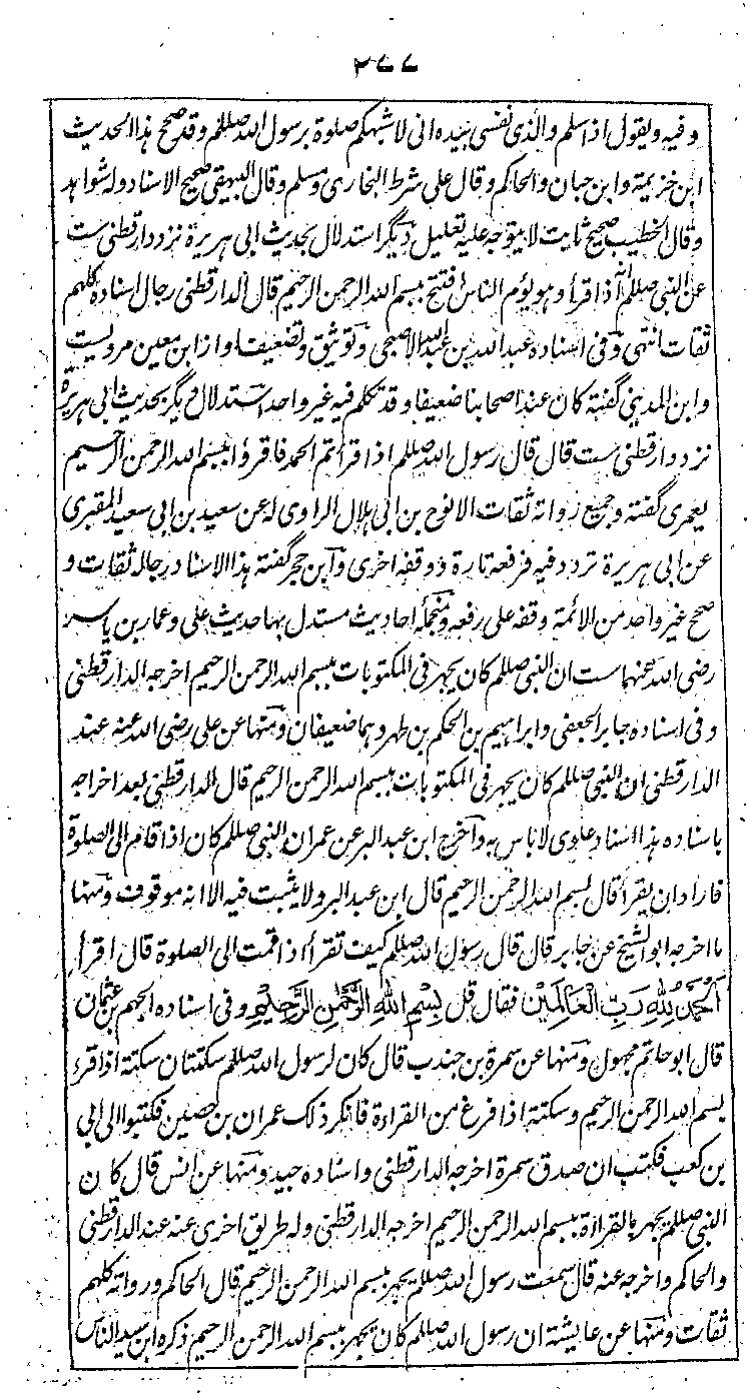 ۲۷۷
وفیه ویقول اذا سلم والذی نفسی بیده انی لاشبهکم صلوة برسول الله صللم وقد صح هذا الحدیث
ابن خزیمة وابن حبان والحاکم وقال علی شرط البخاری ومسلم وقال البیهقی صحیح الاسناد وله شواهد
وقال الخطیب صحیح ثابت لا یتوجه علیه تعلیل دیگر استدلال بحدیث ابی هریرة نزد دارقطنی ست
عن النبی صللم انه اذا قرأ وهو یؤم الناس افتتح ببسم الله الرحمن الرحیم قال الدارقطنی رجال اسناده کلهم
ثقات انتهی وفی اسناده عبد الله بن عبد الله الاصبحی وتوثیق وتضعیف او از ابن معین مرویست
وابن المدینی گفته کان عند اصحابنا ضعیفا وقد تکلم فیه غیر واحد استدلال دیگر بحدیث ابی هریرة
نزد دارقطنی ست قال قال رسول الله صللم اذا قرأتم الحمد فاقرؤا ببسم الله الرحمن الرحیم
یعمری گفته وجمیع رواته ثقات الا نوح بن ابی بلال الراوی له عن سعید بن ابی سعید المقبری
عن ابی هریرة تردد فیه فرفعه تارة ووقفه اخری وابن حجر گفته هذا الاسناد رجاله ثقات و
صحح غیر واحد من الائمة وقفه علی رفعه ومنجمله احادیث مستدل بها حدیث علی وعمار بن یاسر
رضی الله عنهما ست ان النبی صللم کان یجهر فی المکتوبات ببسم الله الرحمن الرحیم اخرجه الدارقطنی
وفی اسناده جابر الجعفی وابراهیم بن الحکم بن ظهیر وهما ضعیفان ومنها عن علی رضی الله عنه عند
الدارقطنی ان النبی صللم کان یجهر فی المکتوبات ببسم الله الرحمن الرحیم قال الدارقطنی بعد اخراجه
باسناده هذا اسناد علوی لا باس به واخرج ابن عبد البر عن عمر ان النبی صللم کان اذا قام الی الصلوة
فاراد ان یقرأ قال بسم الله الرحمن الرحیم قال ابن عبد البر ولا یثبت فیه الا انه موقوف ومنها
ما اخرجه ابو الشیخ عن جابر قال قال رسول الله صللم کیف تقرأ اذا قمت الی الصلوة قال اقرأ
اَلْحَمْدُ لِلّٰهِ رَبِّ الْعَالَمِیْنَ فقال قل بِسْمِ اللّٰهِ الرَّحْمٰنِ الرَّحِیْمِ وفی اسناده الجهم بن عثمان
قال ابو حاتم مجهول ومنها عن سمرة بن جندب قال کان لرسول الله صللم سکتتان سکتة اذا قرء
بسم الله الرحمن الرحیم وسکتة اذا فرغ من القراءة فانکر ذلک عمران بن حصین فکتبوا الی ابی
بن کعب فکتب ان صدق سمرة اخرجه الدارقطنی واسناده جید ومنها عن انس قال کان
النبی صللم یجهر بالقراءة ببسم الله الرحمن الرحیم اخرجه الدارقطنی وله طریق اخری عنه عند الدارقطنی
والحاکم واخرجه عنه قال سمعت رسول الله صللم یجهر ببسم الله الرحمن الرحیم قال الحاکم ورواته کلهم
ثقات ومنها عن عایشة ان رسول الله صللم کان یجهر ببسم الله الرحمن الرحیم ذکره ابن سید الناس